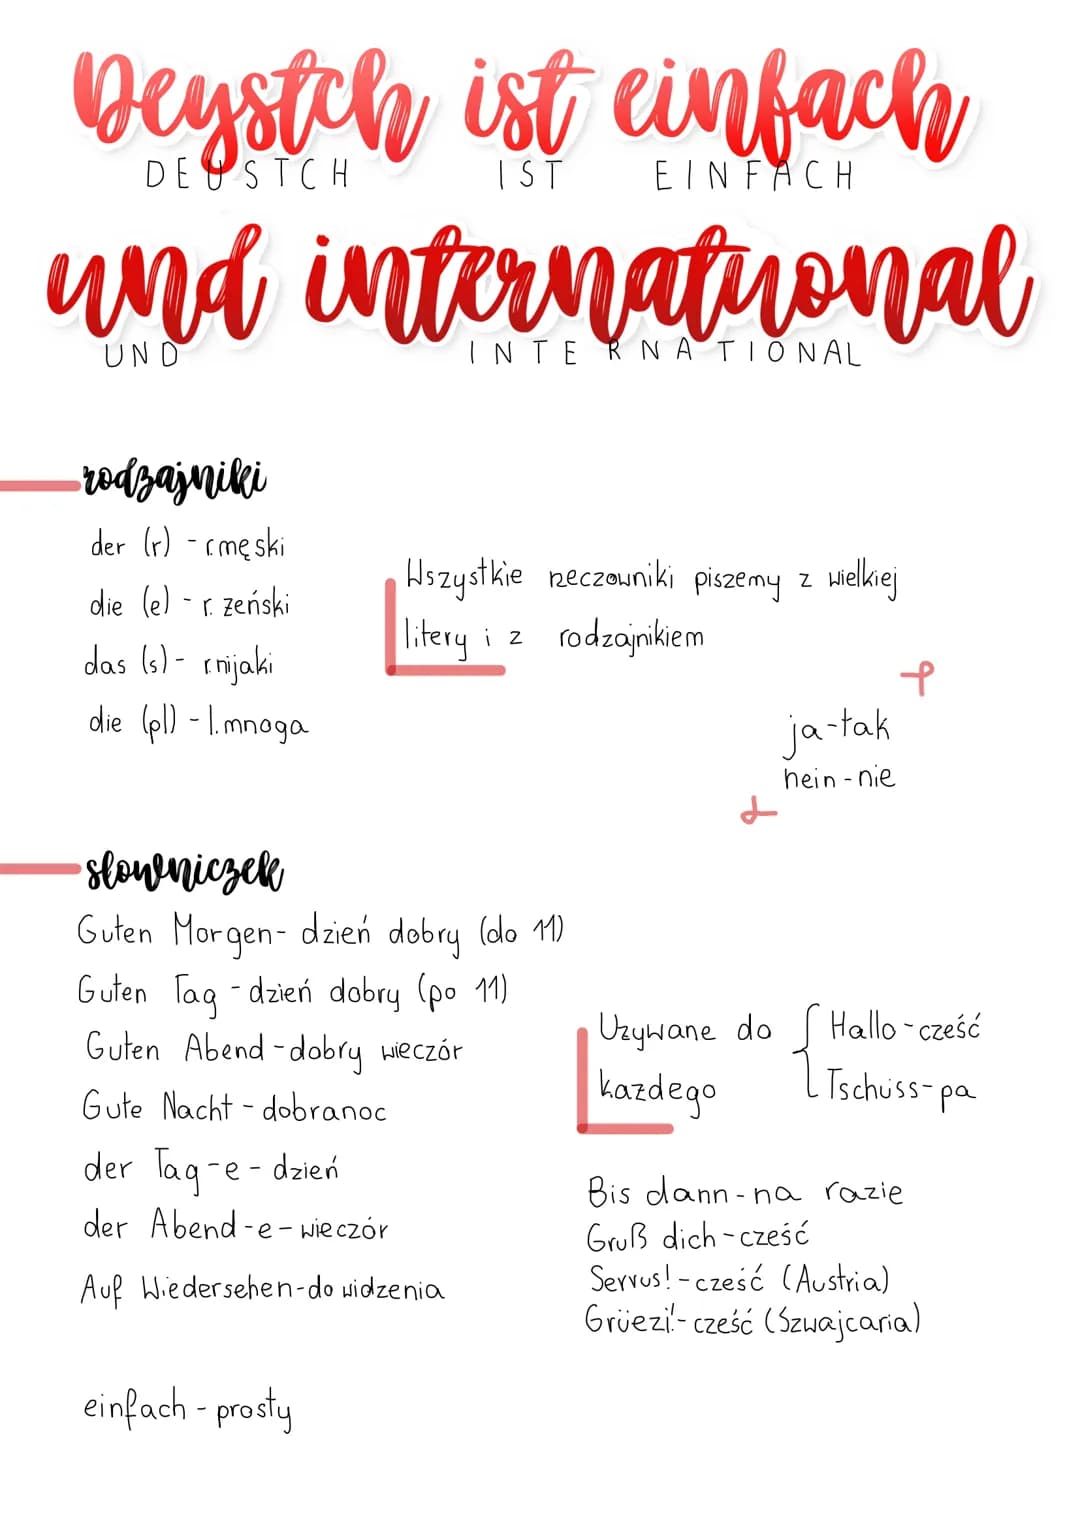 Deystch ist einfach
DEUSTCH IST EINFACH
und international
UND INTERNATIONAL
rodzajniki
der (r) - r.męski
die (e) - r. żeński
das (s) - r.nijaki
die (pl) - l.mnoga
Wszystkie rzeczowniki piszemy z wielkiej
litery i z rodzajnikiem
ja-tak
nein - nie
słowniczek
Guten Morgen- dzień dobry (do 11)
Guten Tag - dzień dobry (po 11)
Guten Abend - dobry wieczór
Gute Nacht - dobranoc
der Tag-e - dzień
der Abend-e - wieczór
Auf Wiedersehen-do widzenia
einfach - prosty
Używane do
każdego
Hallo - cześć
Tschüss- pa
Bis dann - na razie
Gruß dich - cześć
Servus! - cześć (Austria)
Grüezi!- cześć (Szwajcaria)